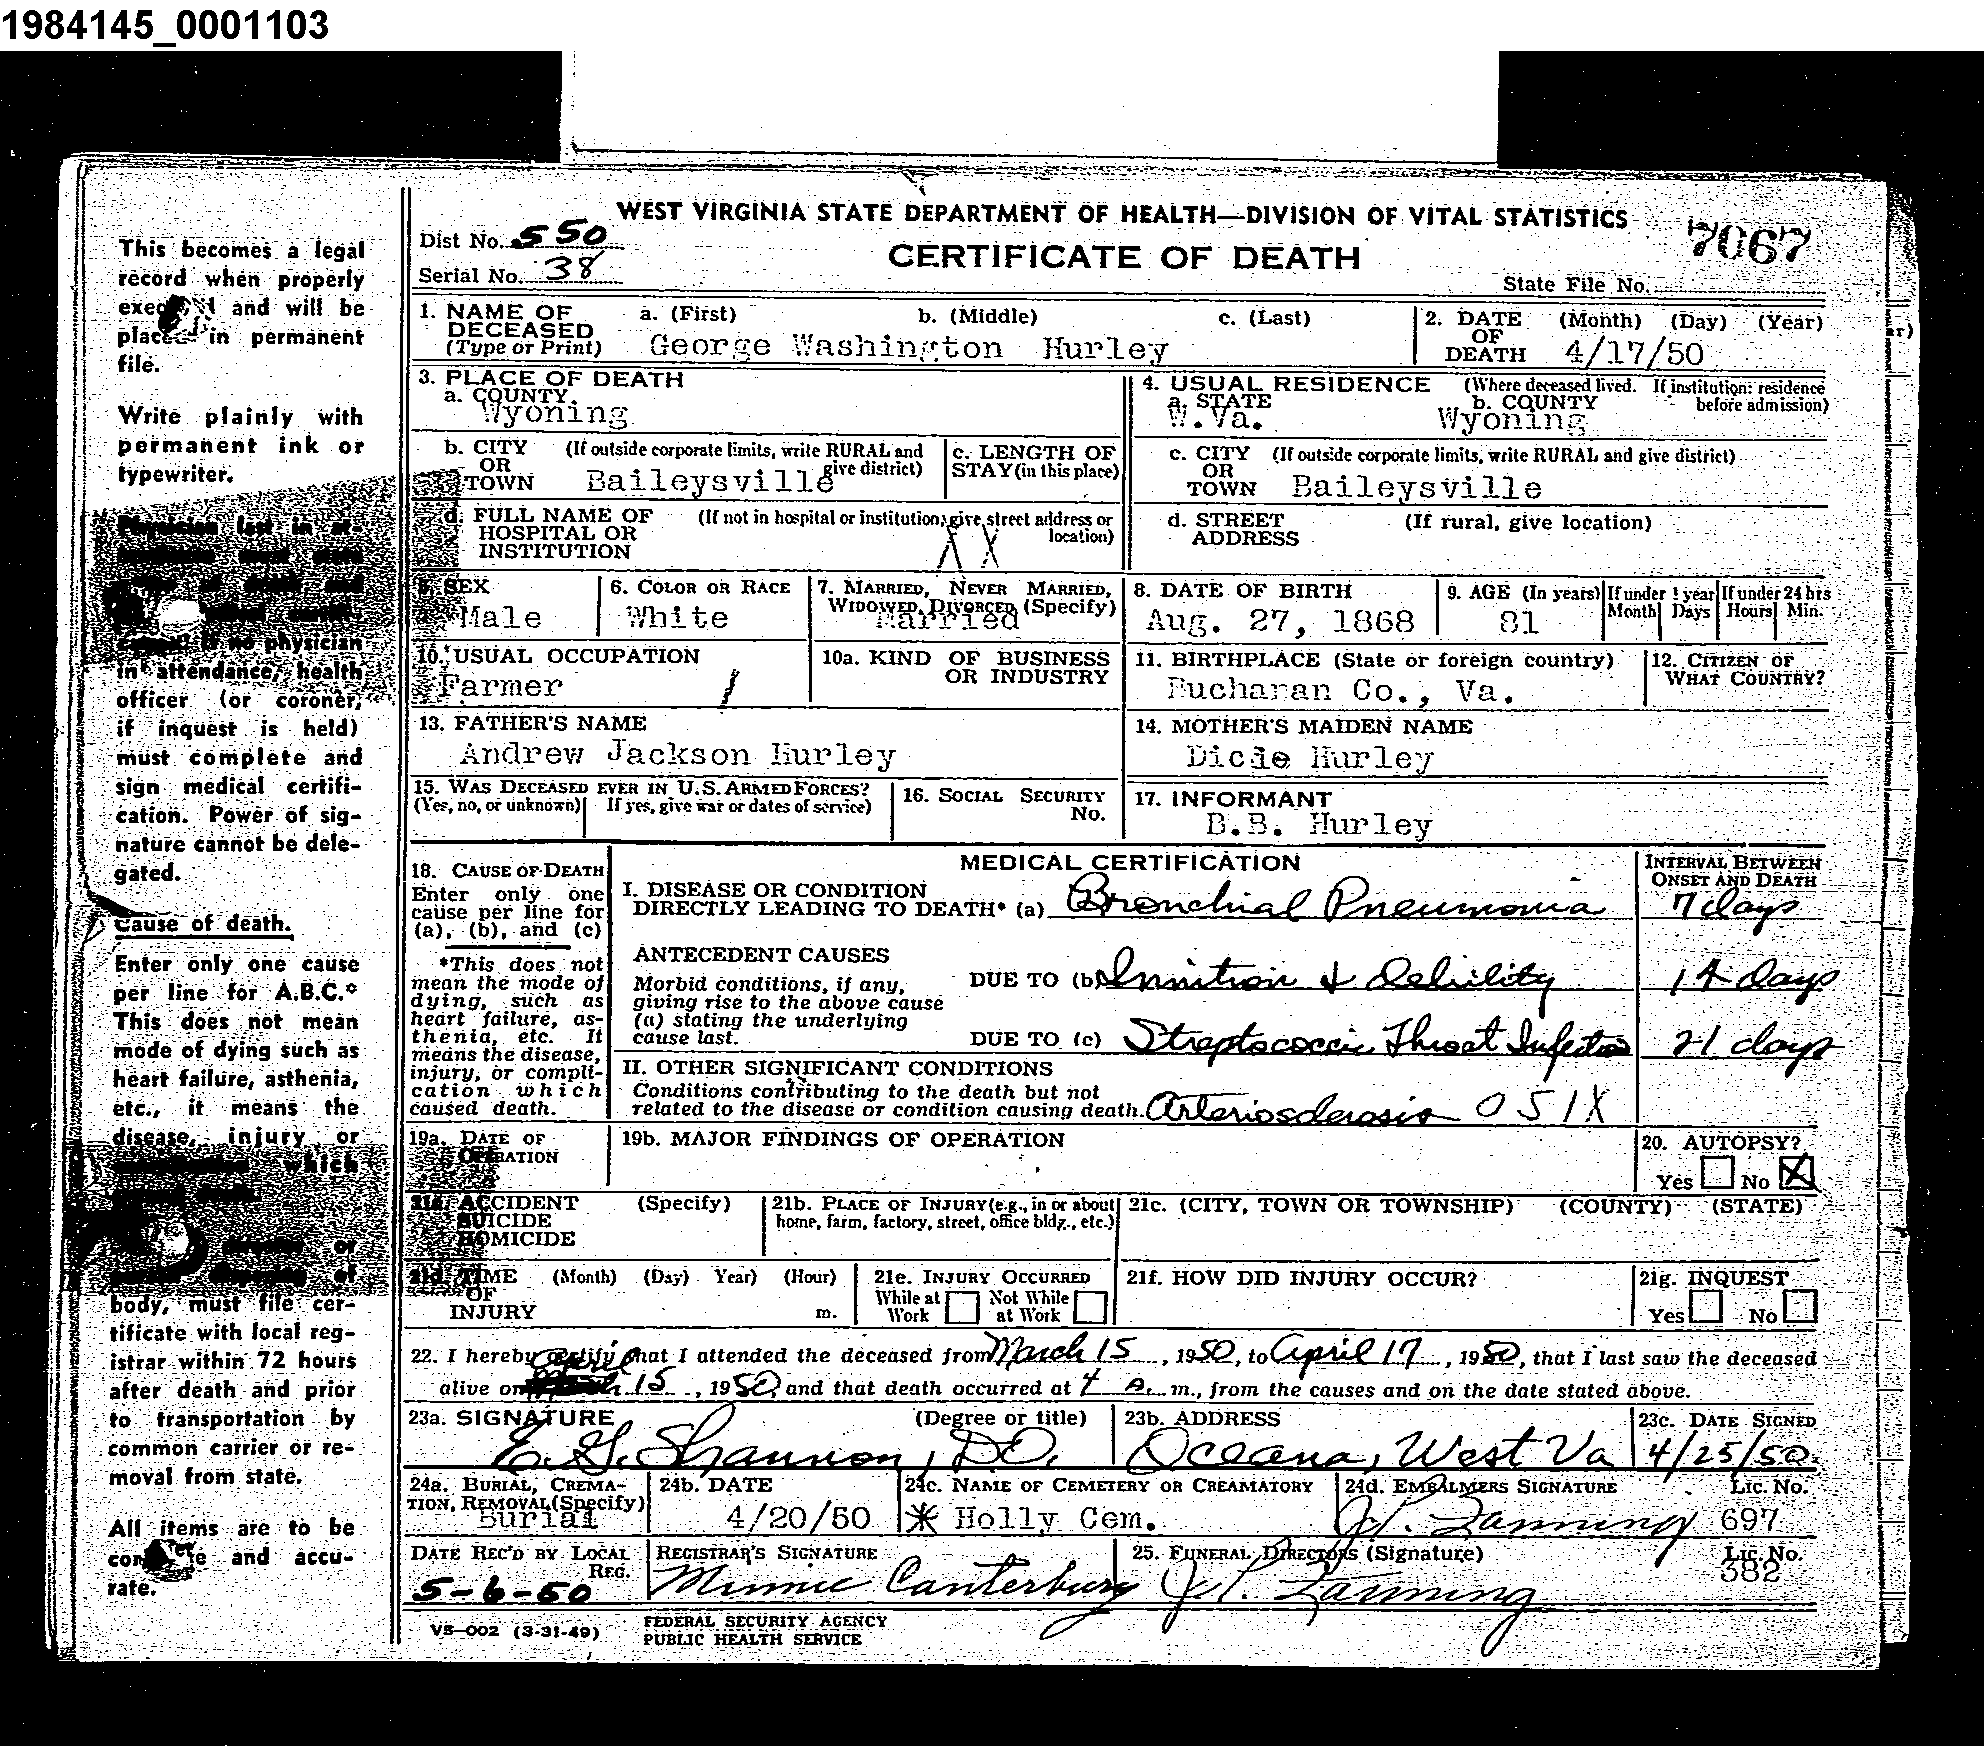 1984145_0001103
WEST VIRGINIA STATE DEPARTMENT OF HEALTH—DIVISION OF VITAL STATISTICS
Dist No. 550
CERTIFICATE OF DEATH
7067
Serial No. 38
State File No.
1. NAME OF DECEASED (Type or Print) a. (First) b. (Middle) c. (Last)
George Washington Hurley
2. DATE OF DEATH (Month) (Day) (Year)
4/17/50
3. PLACE OF DEATH
a. COUNTY
Wyoning
4. USUAL RESIDENCE (Where deceased lived. If institution: residence before admission)
a. STATE b. COUNTY
W.Va. Wyoning
b. CITY OR TOWN (If outside corporate limits, write RURAL and give district)
Baileysville
c. LENGTH OF STAY (in this place)
c. CITY OR TOWN (If outside corporate limits, write RURAL and give district)
Baileysville
d. FULL NAME OF HOSPITAL OR INSTITUTION (If not in hospital or institution, give street address or location)
X X
d. STREET ADDRESS (If rural, give location)
5. SEX
Male
6. COLOR OR RACE
White
7. MARRIED, NEVER MARRIED, WIDOWED, DIVORCED (Specify)
Married
8. DATE OF BIRTH
Aug. 27, 1868
9. AGE (In years)
81
If under 1 year Month Days
If under 24 hrs Hours Min.
10. USUAL OCCUPATION
Farmer
10a. KIND OF BUSINESS OR INDUSTRY
11. BIRTHPLACE (State or foreign country)
Bucharan Co., Va.
12. CITIZEN OF WHAT COUNTRY?
13. FATHER'S NAME
Andrew Jackson Hurley
14. MOTHER'S MAIDEN NAME
Dicie Hurley
15. WAS DECEASED EVER IN U.S. ARMED FORCES?
(Yes, no, or unknown) If yes, give war or dates of service)
16. SOCIAL SECURITY No.
17. INFORMANT
B.B. Hurley
18. CAUSE OF DEATH
Enter only one cause per line for (a), (b), and (c)
*This does not mean the mode of dying, such as heart failure, asthenia, etc. It means the disease, injury, or complication which caused death.
MEDICAL CERTIFICATION
INTERVAL BETWEEN ONSET AND DEATH
I. DISEASE OR CONDITION
DIRECTLY LEADING TO DEATH* (a) Bronchial Pneumonia 7 days
ANTECEDENT CAUSES
Morbid conditions, if any, giving rise to the above cause (a) stating the underlying cause last.
DUE TO (b) Innition & debility 14 days
DUE TO (c) Streptococcic Throat Infection 21 days
II. OTHER SIGNIFICANT CONDITIONS
Conditions contributing to the death but not
related to the disease or condition causing death. Arteriosclerosis 051X
19a. DATE OF OPERATION
19b. MAJOR FINDINGS OF OPERATION
20. AUTOPSY?
Yes No X
21a. ACCIDENT SUICIDE HOMICIDE (Specify)
21b. PLACE OF INJURY (e.g., in or about home, farm, factory, street, office bldg., etc.)
21c. (CITY, TOWN OR TOWNSHIP) (COUNTY) (STATE)
21d. TIME OF INJURY (Month) (Day) Year) (Hour) m.
21e. INJURY OCCURRED
While at Work Not While at Work
21f. HOW DID INJURY OCCUR?
21g. INQUEST
Yes No
22. I hereby certify that I attended the deceased from March 15, 1950, to April 17, 1950, that I last saw the deceased
alive on April 15, 1950, and that death occurred at 4 a. m., from the causes and on the date stated above.
23a. SIGNATURE (Degree or title)
E. G. Shannon, D.O.
23b. ADDRESS
Oceana, West Va
23c. DATE SIGNED
4/25/50
24a. BURIAL, CREMATION, REMOVAL (Specify)
Burial
24b. DATE
4/20/50
24c. NAME OF CEMETERY OR CREAMATORY
* Holly Cem.
24d. EMBALMERS SIGNATURE Lic. No.
J. P. Fanning 697
DATE REC'D BY LOCAL REG.
5-6-50
REGISTRAR'S SIGNATURE
Minnie Canterbury
25. FUNERAL DIRECTORS (Signature) Lic. No.
J. P. Fanning 382
VS-002 (3-31-49)
FEDERAL SECURITY AGENCY
PUBLIC HEALTH SERVICE
This becomes a legal
record when properly
and will be
placed in permanent
file.
Write plainly with
permanent ink or
typewriter.
Physician last in at-
no physician
in attendance, health
officer (or coroner,
if inquest is held)
must complete and
sign medical certifi-
cation. Power of sig-
nature cannot be dele-
gated.
Cause of death.
Enter only one cause
per line for A.B.C.*
This does not mean
mode of dying such as
heart failure, asthenia,
etc., it means the
disease, injury or
which
or
of
body, must file cer-
tificate with local reg-
istrar within 72 hours
after death and prior
to transportation by
common carrier or re-
moval from state.
All items are to be
and accu-
rate.